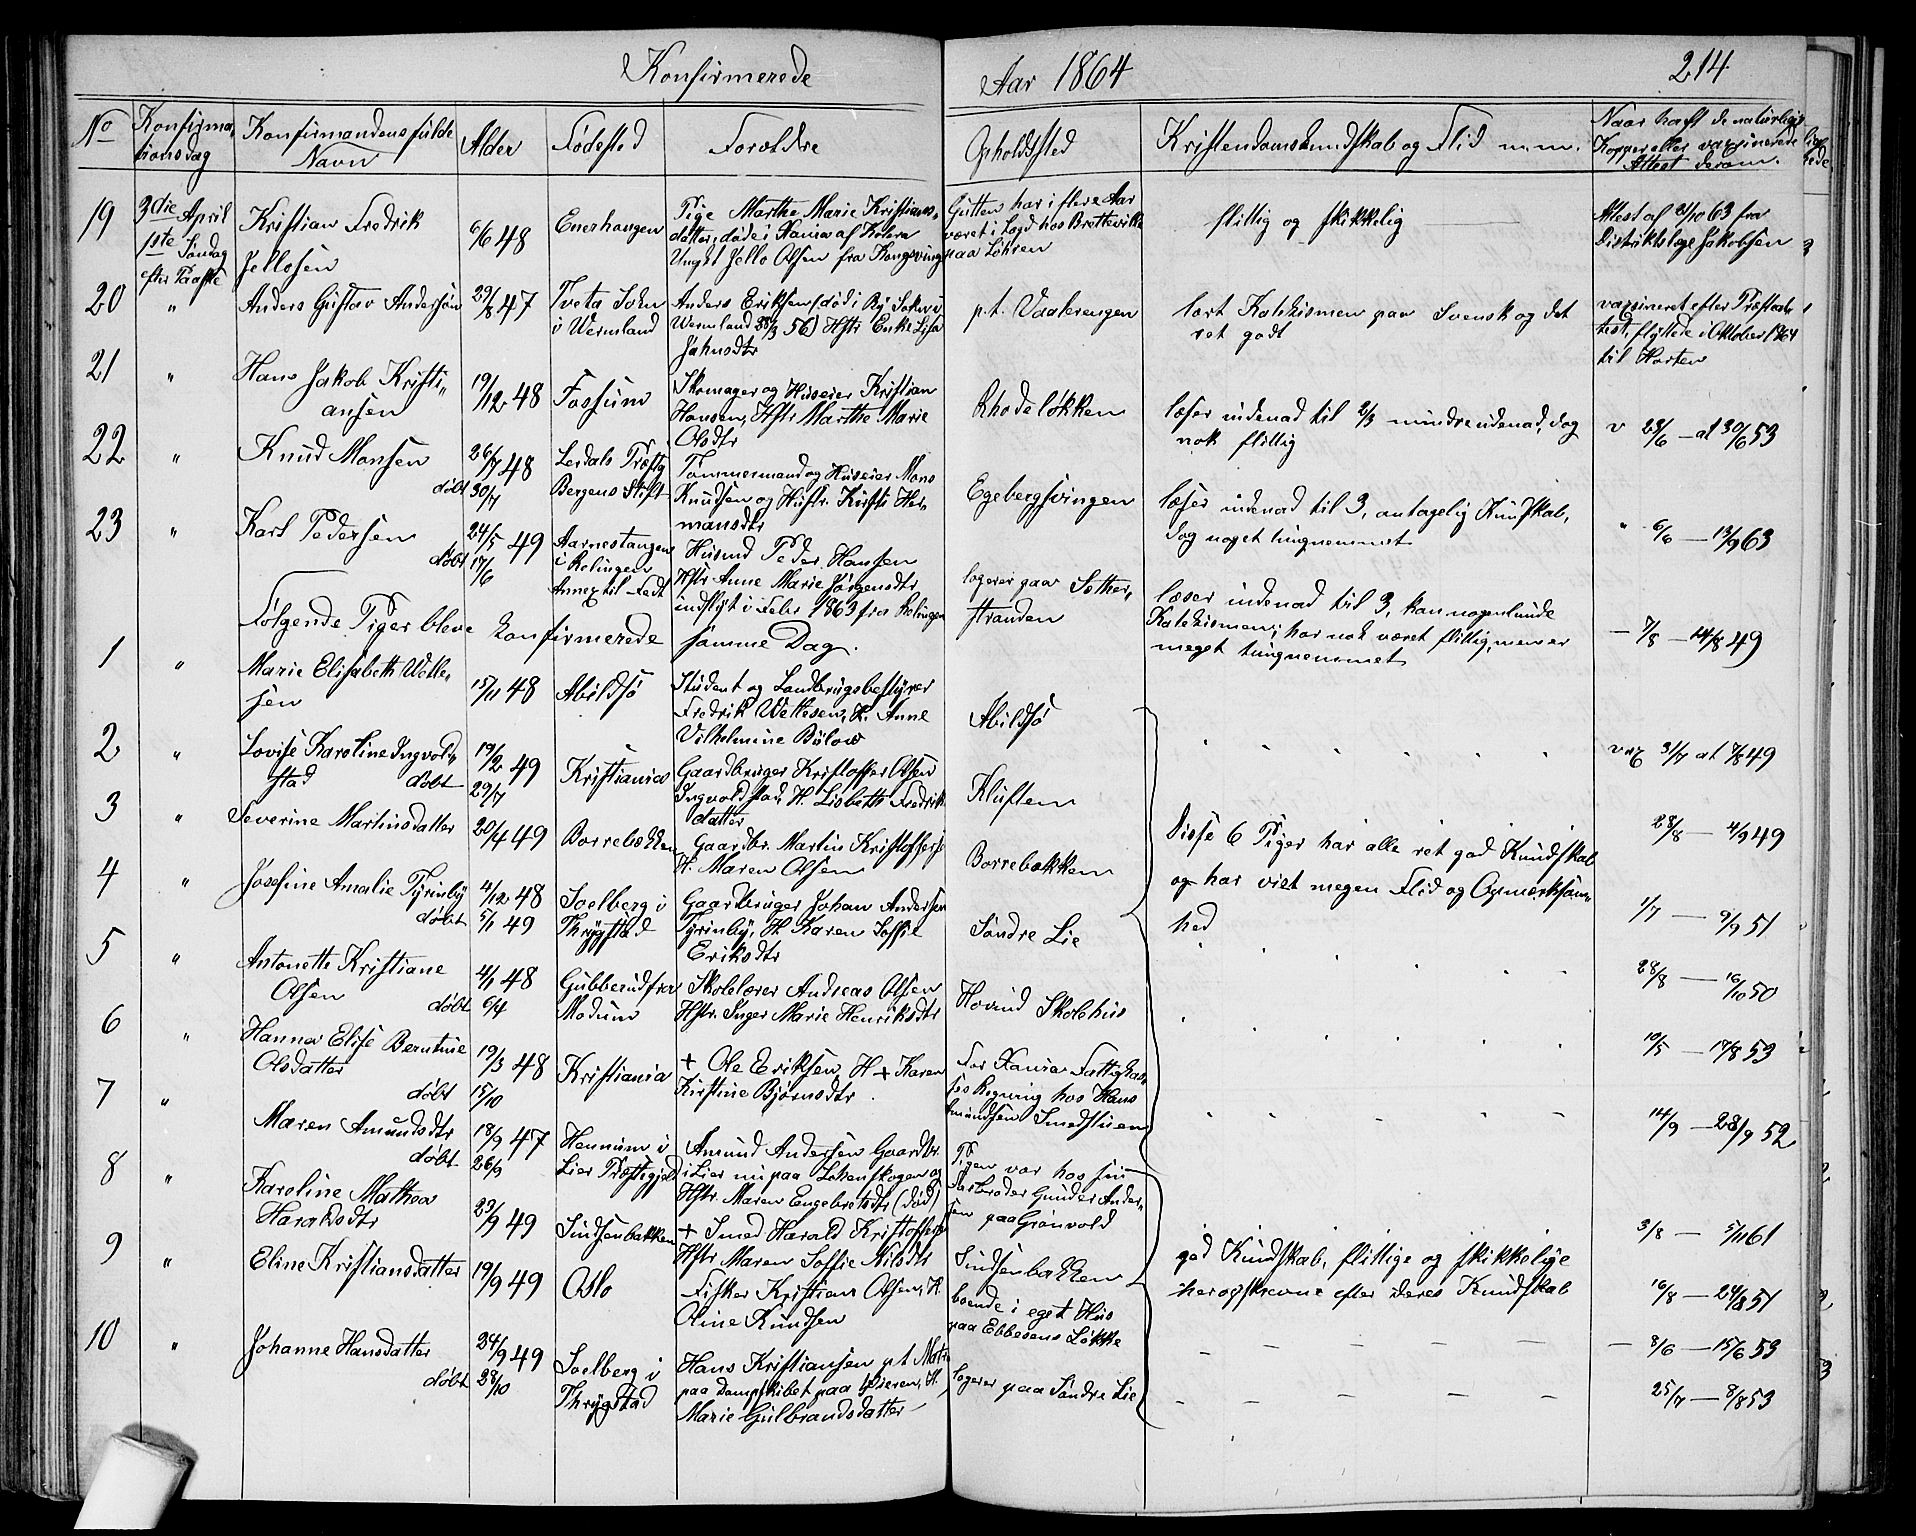 Konfirmerede
Aar 1864
214
No
Konfirma,
tionsdag
Konfirmandens fulde
Navn
Alder
Födested
Foreldre
Opholdssted
Kristendomskundskab og Flid m.m.
Naar haft de naturlige
Kopper eller vaxinerede
Attest derom.
19
3die April
1ste Söndag
efter Paaske
Kristian Fredrik
Jellosen
6/6 48
Enerhaugen
Pige Marthe Marie Kristians,
datter, döde i Xania af Kolera
Ungkl Jello Olsen fra Kongsvinger
Gutten har i flere Aar
været i Logd hos Brettevike
paa Löhren
flittig og skikkelig
Attest af 3/10 63 fra
Distriktslæge Jakobsen
20
"
Anders Gustav Andersön
29/8 47
Tveta Sokn
i Wermland
Anders Eriksen (död i By Soken i
Wermland 28/3 56) Hstr Enke Lisa
Jahnsdtr
p.t. Vaalerengen
lært Katekismen paa Svensk og det
ret godt
vaxineret efter Præsteat,
test, flyttede i Oktober 1864
til Horten
21
"
Hans Jakob Kristi,,
ansen
19/12 48
Fossum
Skomager og Huseier Kristian
Hansen, Hstr Marthe Marie
Olsdtr
Rhodelökken
læser indenad til 2/3 mindre udenad, dog
nok flittig
v 23/6 – at 30/6 53
22
"
Knud Monsen
döbt
26/7 48
30/7
Lerdals Præstg
Bergens Stift
Tömmermand og Huseier Mons
Knudsen og Hustr. Kirsti Her,
mansdtr
Egebergsvingen
læser indenad til 3, antagelig Kundskab,
dog noget tungnemmet
" 6/6 — 13/9 63
23
"
Karl Pedersen
döbt
24/5 49
17/6
Aarnestangen
i Relingen
Annex til Fedt
Husmd Peder Hansen
Hstr Anne Marie Jörgensdtr
indflyt i Febr 1863 fra Relingen
logerer paa Sother,
stranden
læser indenad til 3, kan nogenlunde
Katekismen; har nok været flittig, men er
meget tungnemmet
— 7/8 — 14/8 49
Fölgende Piger bleve konfirmerede samme Dag.
1
"
Marie Elisabeth Wette,
sen
15/11 48
Abildsö
Student og Landbrugsbestyrer
Fredrik Wettesen, H. Anne
Vilhelmine Bülow
Abildsö
vax 31/7 at 7/8 49
2
"
Lovise Karoline Ingvold,
stad döbt
19/2 49
29/7
Kristiania
Gaardbruger Kristoffer Olsen
Ingvoldstad, H. Lisbeth Fredrik
datter
Kluften
28/8 — 4/9 49
3
"
Severine Martinsdatter
20/4 49
Borrebekken
Gaardbr. Martin Kristoffersen
H. Maren Olsen
Borrebekken
Disse 6 Piger har alle ret god Kundskab
og har vist megen Flid og Opmerksom,
hed
1/7 — 9/9 51
4
"
Josefine Amalie Tyrinby
döbt
4/12 48
5/1 49
Soelberg i
Thrygstad
Gaardbruger Johan Andersen
Tyrinby, H. Karen Soffie
Eriksdtr
Söndre Lie
28/8 — 16/10 50
5
"
Antonette Kristiane
Olsen döbt
4/1 48
6/4
Gubberud fra
Modum
Skolelærer Andreas Olsen
Hstr. Inger Marie Henriksdtr
Hovind Skolehus
10/5 — 17/8 53
6
"
Hanna Elise Berntine
Olsdatter
döbt
19/3 48
15/10
Kristiania
+ Ole Eriksen, H + Karen
Kirstine Björnsdtr
For Xania Fattigkas,
ses Regning hos Hans
Amundsen Smedstuen
14/9 — 28/9 52
7
"
Maren Amundsdtr
döbt
18/9 47
26/9
Hennum i
Lier Præstegjeld
Amund Andersen Gaardbr
i Lier nu paa Lohenskogen og
Hstr. Maren Engebretsdtr (död)
Pigen var hos sin
Farbroder Gunder Ander,
sen paa Grönvold
3/8 — 5/11 61
8
"
Karoline Mathea
Haraldsdtr
23/9 49
Sindsenbakken
+ Smed Harald Kristoffersen
Hstr Maren Soffie Nilsdtr
Sindsenbakken
god Kundskab, flittige og skikkelige
her opskrevne efter deres Kundskab
16/8 — 24/8 51
9
"
Eline Kristiansdatter
19/9 49
Oslo
Fisker Kristian Olsen, H.
Oline Knudsen
boende i eget Hus
paa Ebbesens Lökke
— 8/6 — 15/6 53
10
"
Johanne Hansdatter
döbt
24/9 49
28/10
Soelberg i
Thrygstad
Hans Kristiansen p.t Matr
paa Dampskibet paa Öieren, H.
Marie Gulbrandsdatter
logerer paa Söndre Lie
25/7 — 8/8 53